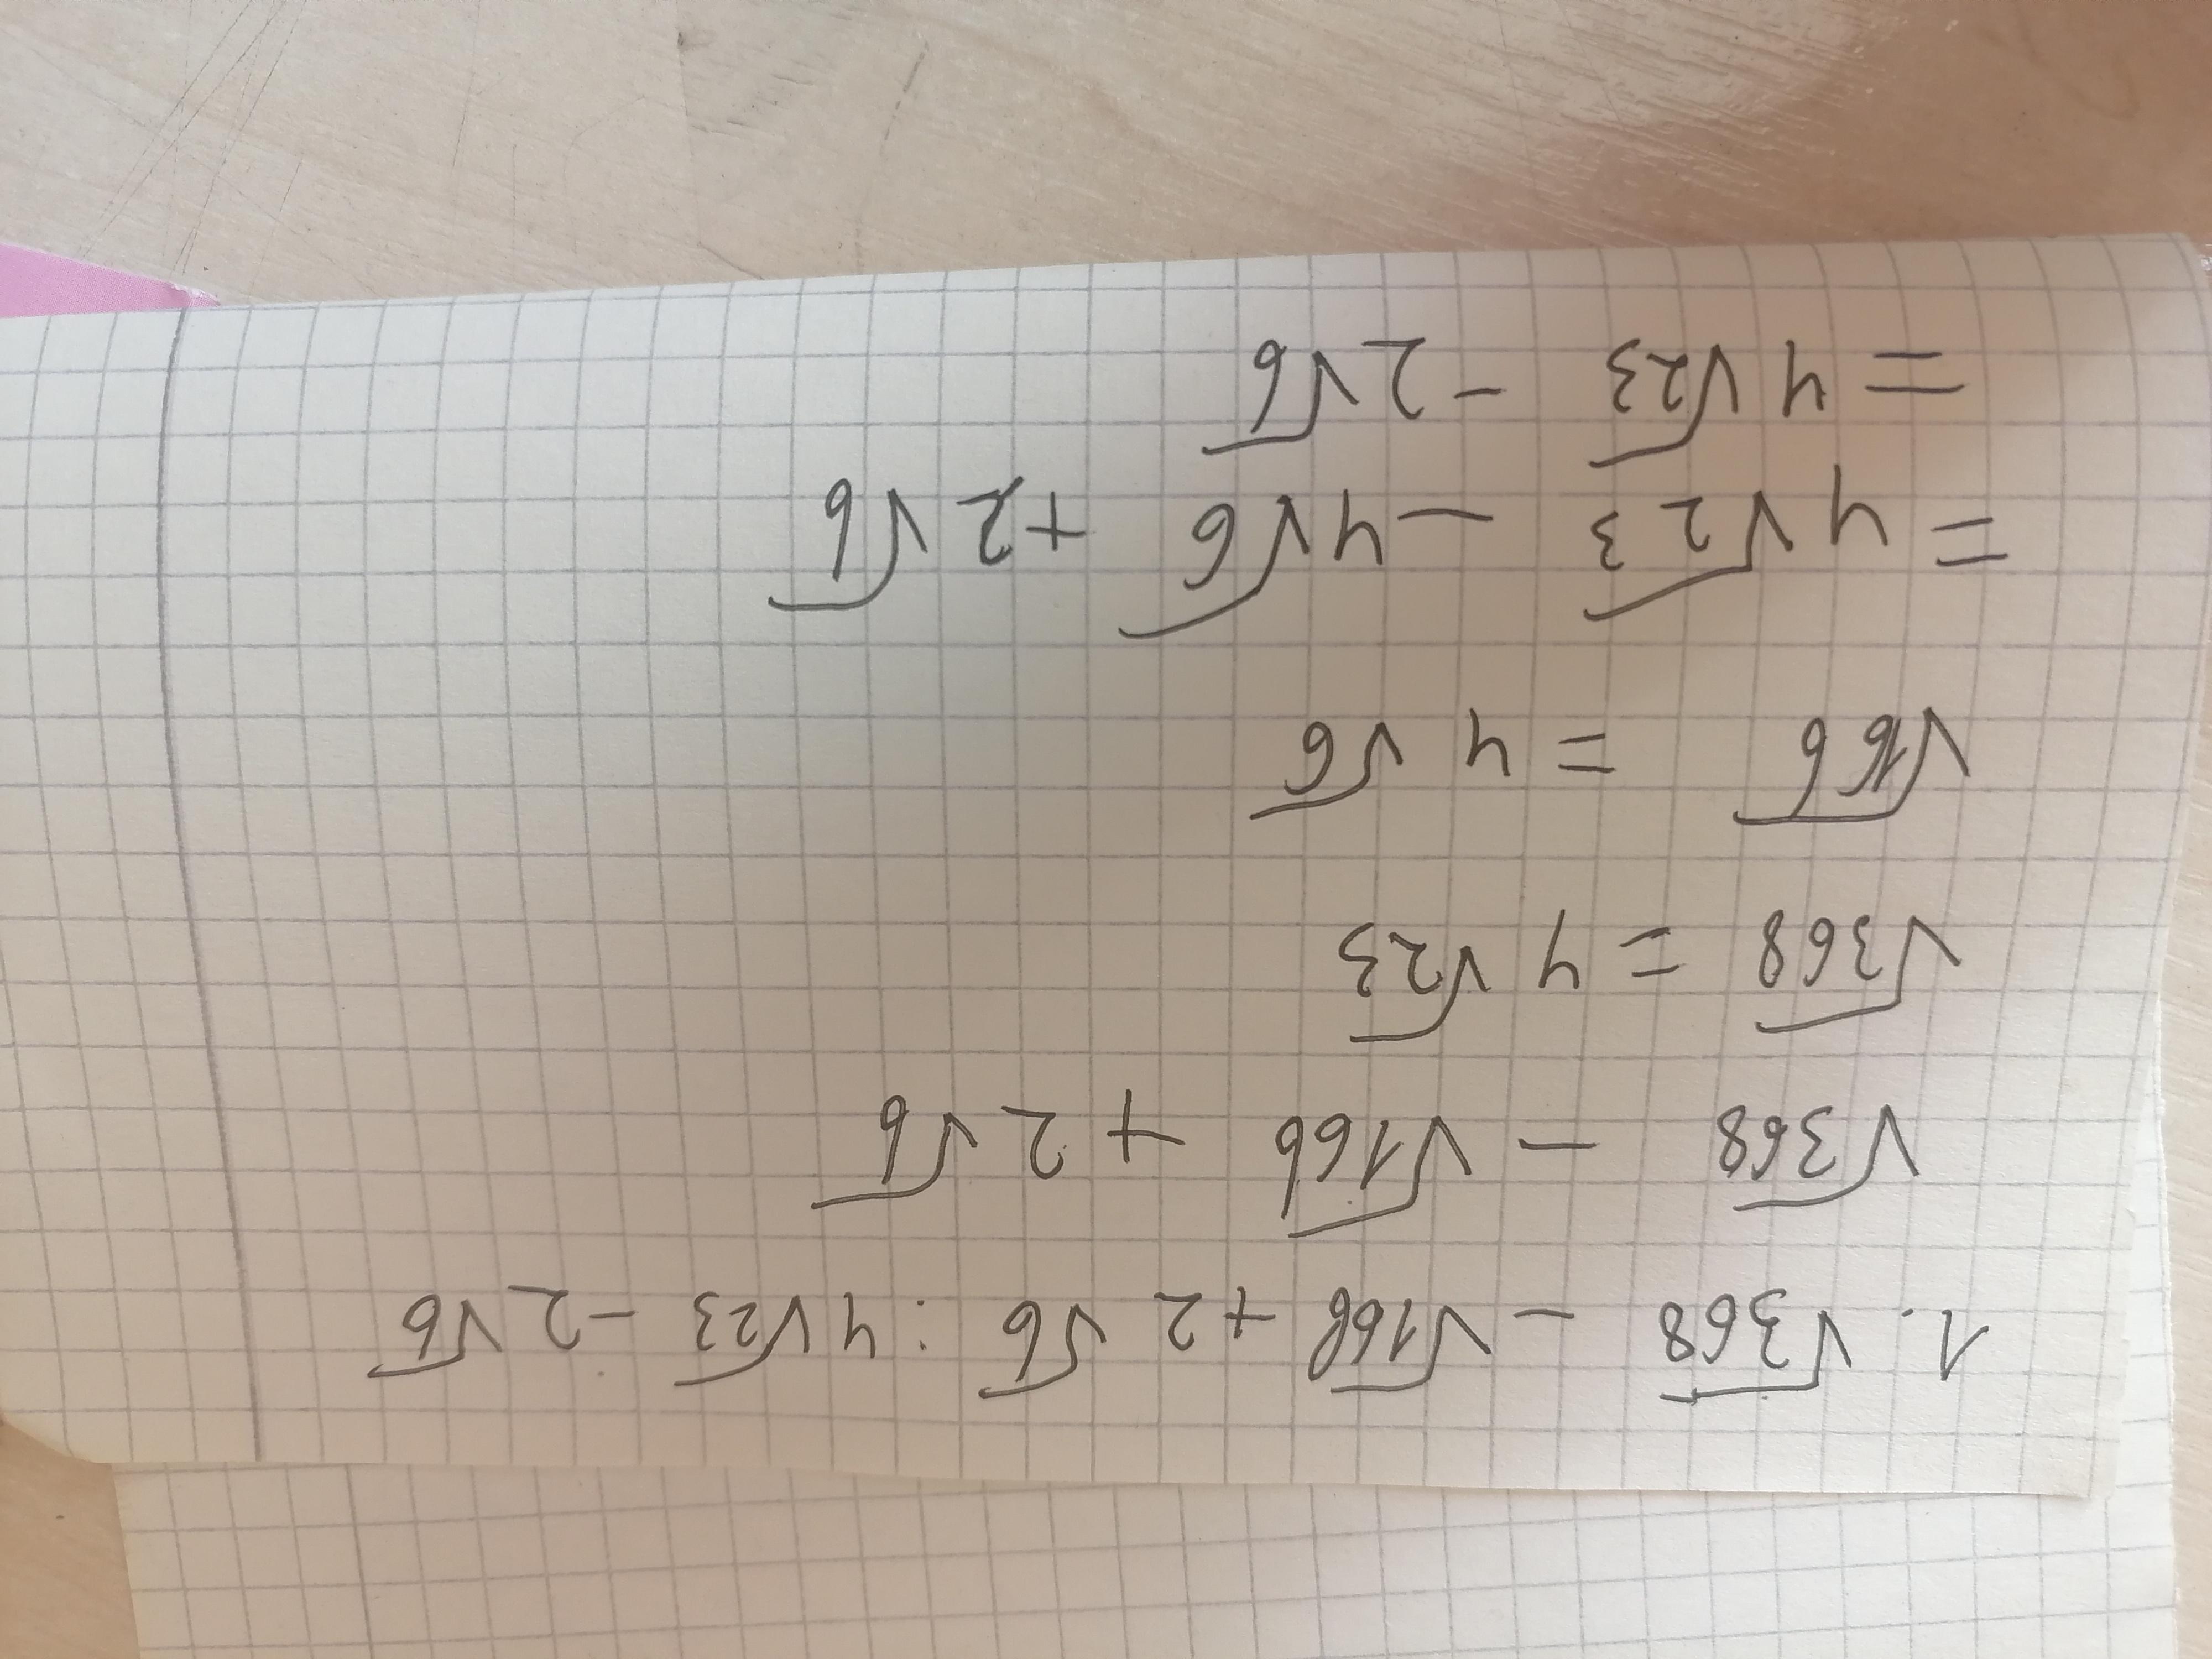 1. √368 - √166 + 2√6 : 4√23 - 2√6
√368 - √166 + 2√6
√368 = 4√23
√166 = 4√6
= 4√23 - 4√6 + 2√6
= 4√23 - 2√6